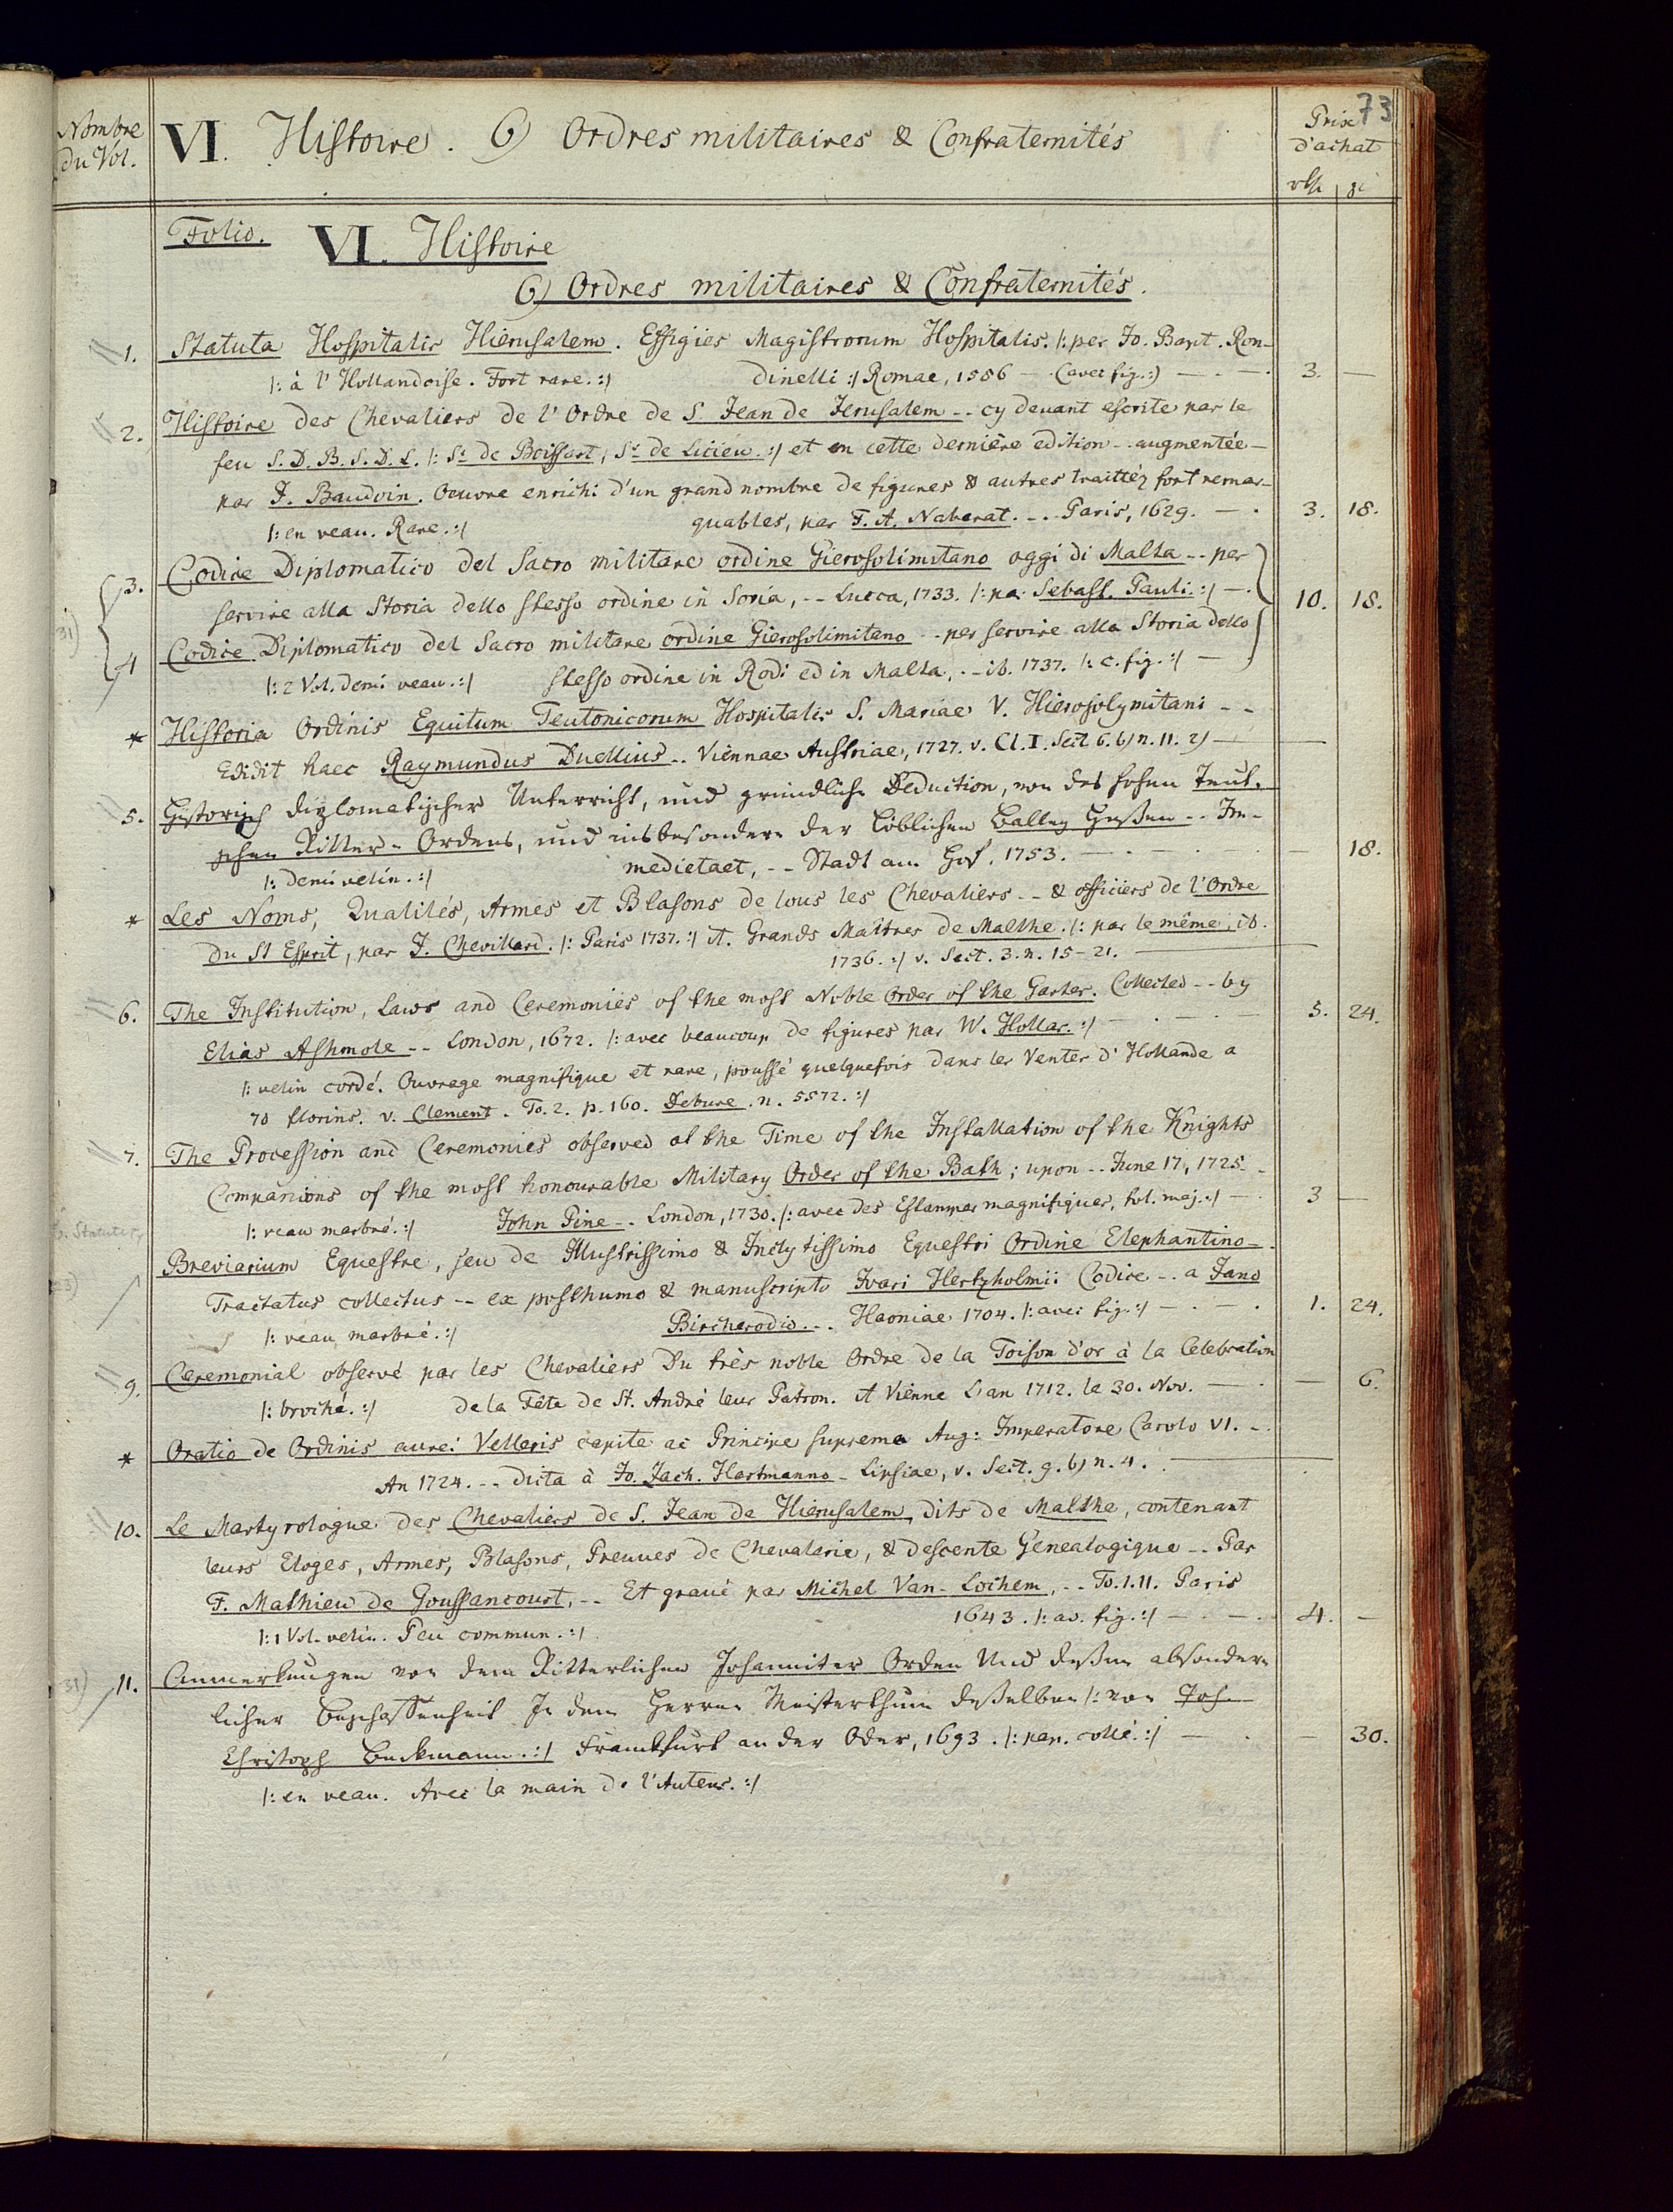 73
Nombre du Vol.
VI. Histoire. 6) Ordres militaires & Confraternités
Prix d'achat
rth gr
Folio. VI. Histoire
6) Ordres militaires & Confraternités.
1. Statuta Hospitalis Hierusalem. Effigies Magistrorum Hospitalis. /: per Jo. Bapt. Ron-
/: à l'Hollandoise. Fort rare. :/ dinelli :/ Romae, 1586 — (avec fig.:) — . — . 3. —
2. Histoire des Chevaliers de l'Ordre de S. Jean de Jerusalem -- cy devant escrite par le
feu S. D. B. S. D. L. /: Sr. de Boissart, Sr. de Licieu. :/ et en cette dernière edition -- augmentée —
par J. Baudoin. Oeuvre enrichi d'un grand nombre de figures & autres traittéz fort remar-
/: en veau. Rare. :/ quables, par F. A. Naberat. -- Paris, 1629. — . 3. 18.
3. Codice Diplomatico del Sacro militare ordine Gierosolimitano oggi di Malta -- per
servire alla Storia dello stesso ordine in Soria, -- Lucca, 1733. /: pa. Sebast. Pauli. :/ — . 10. 18.
31)
4 Codice Diplomatico del Sacro militare ordine Gierosolimitano -- per servire alla Storia dello
/: 2 Vol. demi veau. :/ stesso ordine in Rodi ed in Malta, -- ib. 1737. /: c. fig. :/ —
* Historia Ordinis Equitum Teutonicorum Hospitalis S. Mariae V. Hierosolymitani --
Edidit haec Raymundus Duellius -- Viennae Austriae, 1727. v. Cl. I. Sect. 6. b) n. 11. 2) — —
5. Historisch diplomatischer Unterricht, und gründliche Deduction, von des hohen Teut-
schen Ritter-Ordens, und insbesondere der löblichen Balley Heßen -- Im-
/: demi velin. :/ medietaet, -- Stadt am Hof, 1753. — . — . — . — 18.
* Les Noms, Qualités, Armes et Blasons de tous les Chevaliers -- & officiers de l'Ordre
du St Esprit, par J. Chevillard. /: Paris 1737. :/ it. Grands Maîtres de Malthe. /: par le même, ib.
1736. :/ v. Sect. 3. n. 15-21. —
6. The Institution, Laws and Ceremonies of the most Noble Order of the Garter. Collected -- by
Elias Ashmole -- London, 1672. /: avec beaucoup de figures par W. Hollar. :/ — . — . — 5. 24.
/: velin cordé. Ouvrage magnifique et rare, poussé quelquefois dans les Ventes d'Hollande a
70 florins. v. Clement. To. 2. p. 160. Debure. n. 5572. :/
7. The Procession and Ceremonies observed at the Time of the Installation of the Knights
Companions of the most honourable Military Order of the Bath; upon -- June 17, 1725 --
/: veau marbré. :/ John Pine -- London, 1730. /: avec des Estampes magnifiques, fol. maj. :/ — . 3 —
Breviarium Equestre, seu de Illustrissimo & Inclytissimo Equestri Ordine Elephantino --
Tractatus collectus -- ex posthumo & manuscripto Ivari Hertzholmii Codice -- a Jano
/: veau marbré. :/ Bircherodio -- Haoniae 1704. /: avec fig. :/ — . — . 1. 24.
9. Ceremonial observé par les Chevaliers du très noble Ordre de la Toison d'or à la Celebration
/: broché. :/ de la Fête de St. André leur Patron. A Vienne L'an 1712. le 30. Nov. — . — 6.
* Oratio de Ordinis aurei Velleris capite ac Principe supremo Aug: Imperatore Carolo VI. --
An 1724. -- dicta à Jo. Zach. Hartmanno - Lipsiae, v. Sect. 9. b) n. 4. —
10. Le Martyrologue des Chevaliers de S. Jean de Hierusalem, dits de Malthe, contenant
leurs Eloges, Armes, Blasons, Preuves de Chevalerie, & descente Genealogique -- Par
F. Mathieu de Goussancourt, -- Et gravé par Michel Van-Lochem, -- To. I. II. Paris
/: 1 Vol. velin. Peu commun. :/ 1643. /: av. fig. :/ — . — . 4. —
31) 11. Anmerkungen von dem Ritterlichen Johanniter Orden Und deßen absonder-
licher Beschaffenheit In dem Herren Meisterthum deßelben /: von Joh.
Christoph Beckmann. :/ Franckfurt an der Oder, 1693. /: pap. collé. :/ — . — 30.
/: en veau. Avec la main de l'Auteur. :/